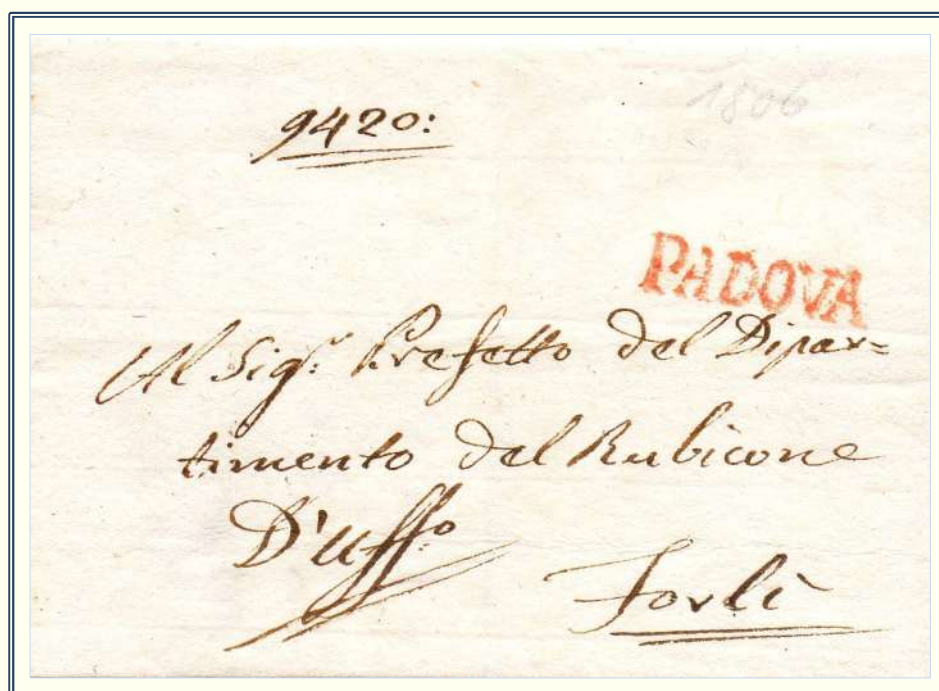 1806
9420:
PADOVA
Al Sigr. Prefetto del Dipar=
timento del Rubicone
D'Uffo.
Forlì